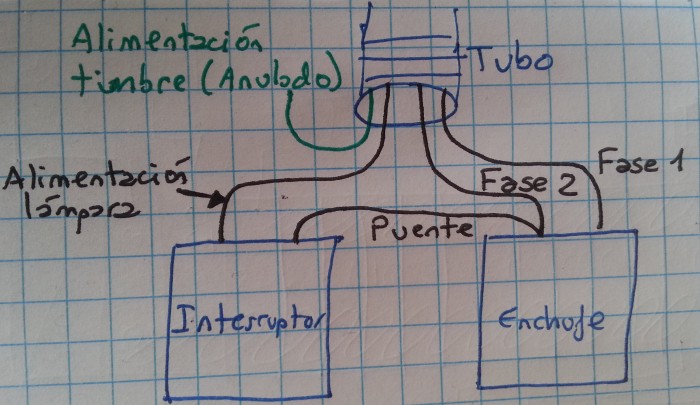 Alimentación
timbre (Anulado)
Tubo
Alimentación
lámpara
Fase 1
Fase 2
Puente
Interruptor
Enchufe